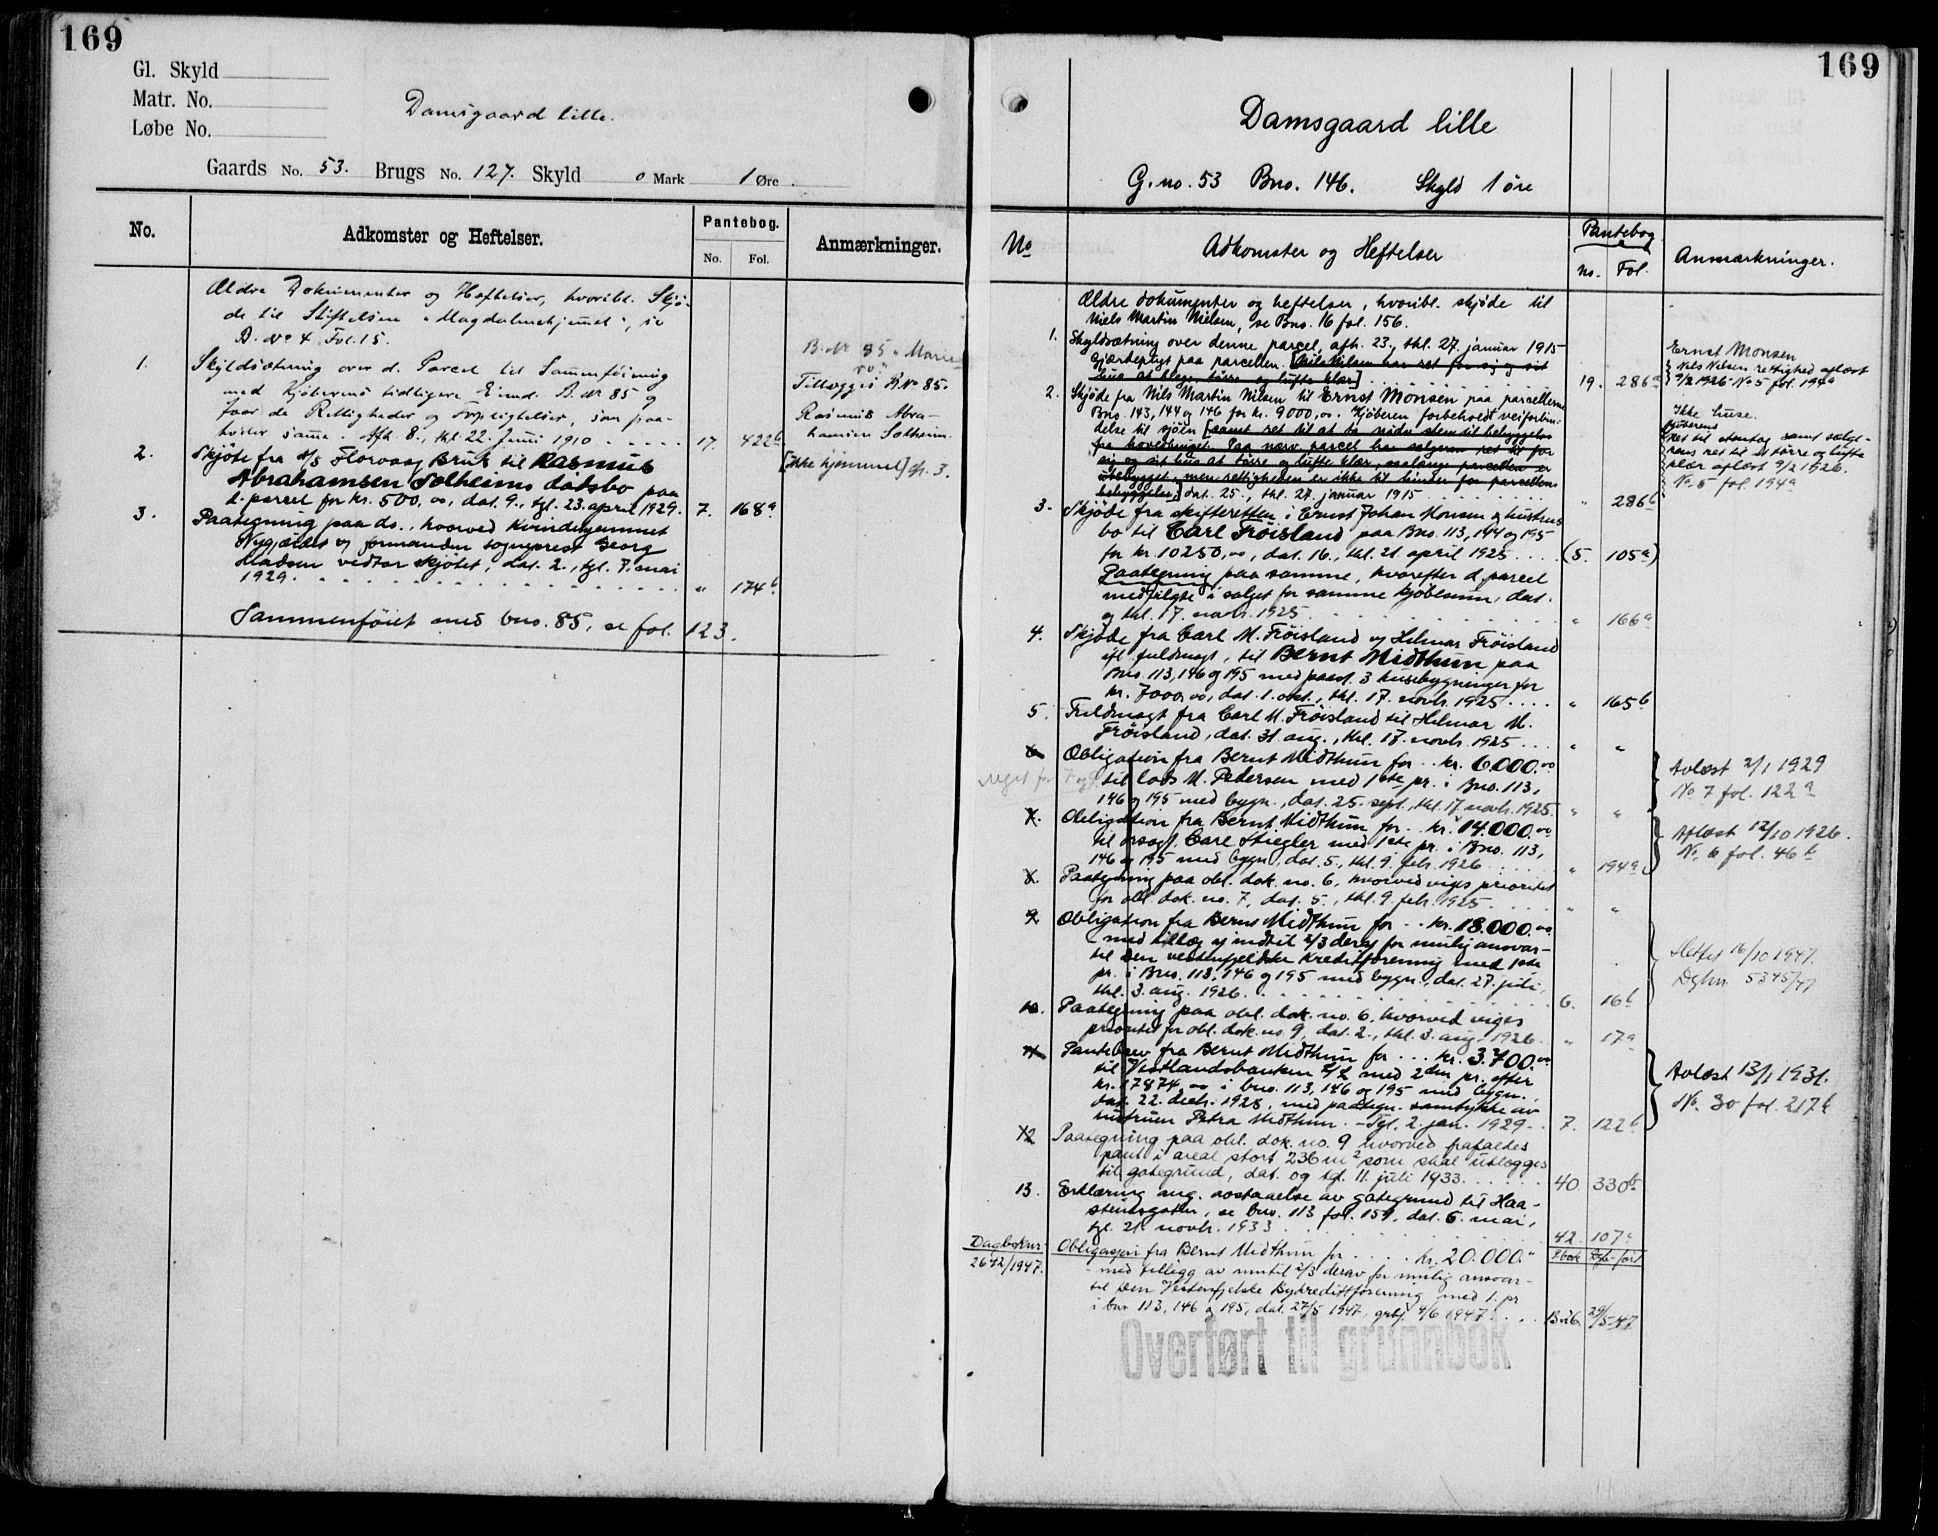 169
Gl. Skyld
Matr. No.
Løbe No.
Damsgaard lille.
Gaards No. 53. Brugs No. 127. Skyld 0 Mark 1 Øre.
No. Adkomster og Heftelser. Pantebog. Anmærkninger.
No. Fol.
Ældre Dokumenter og Heftelser, hvoribl. Skjø-
de til Stiftelsen "Magdalenehjemmet", se
B. No 4 Fol. 15.
1. Skyldsætning over d. Parcel til Sammenføining
med Kjøberens tidligere Eiend. B. No 85 og
faar de Rettigheder og Forpligtelser, som paa-
hviler samme. Afh. 8., thl. 22. Juni 1910 - - - - - 17. 422b
B. No 85 "Marie
ro"
Tillægges B No 85.
Rasmus Abra-
hamsen Solheim.
[ikke hjemmel] cfr. 3.
2. Skjøte fra A/S Florvaag Bruk til Rasmus
Abrahamsen Solheims dødsbo paa
d. parcel for kr. 500,00, dat. 9., tgl. 23. april 1929. 7. 168a
3. Paategning paa do., hvorved Kvindehjemmet
Nygaard ved formanden sogneprest Georg
Madsen vedtar skjøtet, dat. 2., tgl. 7. mai
1929. . . . . . . . . . . . . . . . . . . " 174b
Sammenføiet med bno. 85, se fol. 123.
169
Damsgaard lille
G. no. 53 Bno. 146. Skyld 1 øre
No Adkomster og Heftelser Pantebog Anmærkninger.
no. Fol.
Ældre dokumenter og heftelser, hvoribl. skjøde til
Niels Martin Nielsen, se Bno. 16 fol. 156.
1. Skyldsætning over denne parcel, afh. 23., thl. 27. januar 1915
Gjærdepligt paa parcellen. [Nils Nilsen har ret for sig og sit
hus at blege, tørre og lufte klær] . . . . . . . 19. 286a
Ernst Monsen
Nils Nilsen rettighed aflæst
9/2 1926. No 5 fol. 194a
2. Skjøde fra Nils Martin Nilsen til Ernst Monsen paa parcellerne
Bno. 143, 144 og 146 for kr. 9000,00. Kjøberen forbeholdt veiforbin-
delse til sjøen [samt ret til at ta videre sten til bebyggelse
fra hovedbruget. Paa nærv. parcel har sælgeren ret til for
sig og sit hus at tørre og lufte klær, saalænge parcellen er
ubebygget, men rettigheden er ikke til hinder for parcellens
bebyggelse,] dat. 25., thl. 27. januar 1915 . . . . . . " 286b
Ikke huse.
Kjøberens
ret til stentag samt sælge-
rens ret til at tørre og lufte
klær aflæst 9/2 1926.
No. 5 fol. 194a
3. Skjøde fra skifteretten i Ernst Johan Monsen og hustrus
bo til Carl Frøisland paa Bno. 113, 144 og 195
for kr. 10250,00, dat. 16., thl. 21 april 1925 . . . . (5. 105a)
Paategning paa samme, hvorefter d. parcel
medfulgte i salget for samme kjøbesum, dat.
og thl. 17. novbr. 1925 . . . . . . . . . " 166a
4. Skjøde fra Carl M. Frøisland og Hilmar Frøisland
ifl. fuldmagt, til Bernt Midthun paa
Bno. 113, 146 og 195 med paast. 3 husebygninger for
kr. 7000,00, dat. 1. okt., thl. 17. novbr. 1925 . . . . " 165b
5. Fuldmagt fra Carl M. Frøisland til Hilmar M.
Frøisland, dat. 31. aug., thl. 17. novbr. 1925 . . . " "
6. Obligation fra Bernt Midthun for . . kr. 6.000.00
til Lods M. Pedersen med 1ste pr. i Bno. 113,
146 og 195 med bygn., dat. 25. sept., thl. 17. novbr. 1925. " "
veget for 7 og 9
Avlæst 2/1 1929
No 7 fol. 122a
7. Obligation fra Bernt Midthun for . . kr. 14.000.00
til orsagf. Carl Stiegler med 1ste pr. i Bno. 113,
146 og 195 med bygn., dat. 5., thl. 9. febr. 1926 . . . . . " 194a
Aflæst 12/10 1926.
No. 6 fol. 46b
8. Paategning paa obl. dok. no. 6, hvorved viges prioritet
for obl. dok. no. 7, dat. 5., thl. 9. febr. 1925. . . . . " "
9. Obligation fra Bernt Midthun for . . kr. 18.000.00
- med tillæg af indtil 2/3 deraf for mulig ansvar -
til Den vestenfjeldske Kreditforening med 1ste
pr. i Bno. 113, 146 og 195 med bygn., dat. 27. juli,
thl. 3. aug. 1926. . . . . . . . . . . . . . . . 6. 16b
Slettet 16/10 1947.
Dgbnr. 5345/47
10. Paategning paa obl. dok. no. 6, hvorved viges
prioritet for obl. dok. no. 9, dat. 2., thl. 3. aug. 1926. " 17a
11. Pantebrev fra Bernt Midthun for . . . kr. 3.700.00
til Vestlandsbanken A/L med 2den pr. efter
kr. 17874,00 i bno. 113, 146 og 195 med bygn.,
dat. 22. decbr. 1928, med paategn. samtykke av
hustruen Petra Midthun. - Tgl. 2. jan. 1929 - . 7. 122b
Avlæst 13/1 1931.
No. 30 fol. 217b
12 Paategning paa obl. dok. no. 9 hvorved frafaldes
pant i areal stort 236 m2 som skal utlægges
til gategrund, dat. og tgl. 11. juli 1933. . . . . . . 40. 330b
13. Erklæring ang. avstaaelse av gategrund til Haa-
steinsgaten, se bno. 113 fol. 157, dat. 6. mai,
tgl. 21 novbr. 1933 . . . . . . . . 42. 107a
Dagboknr. Obligasjon fra Bernt Midthun for . . . . kr. 20.000." P.bok Dgb-ført
2642/1947. - med tillegg av inntil 2/3 derav for mulig ansvar -
til Den Vestenfjelske Bykredittforening med 1. pr
i bnr 113, 146 og 195, dat. 27/5 1947, grbf. 4/6 1947. . . . B 06 29/5-47
Overført til grunnbok